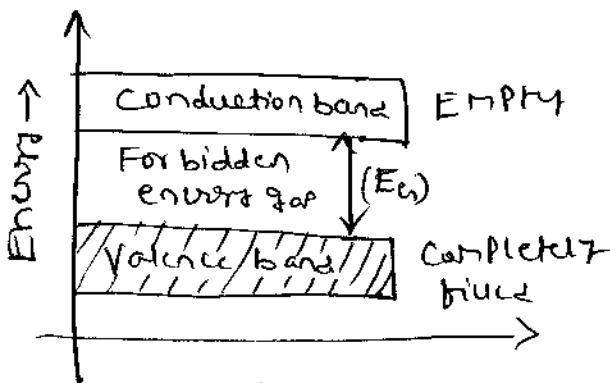 Energy →
Conduction band
EMPTY
Forbidden
energy gap
(EG)
Valence band
Completely
filled